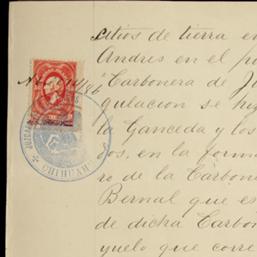 sitios de tierra en
Andres en el p
Carbonera de J
gulacion se hi
la Ganceda y los
os, en la forma
ro de la Carbon
Bernal que es
de dicha Carbon
yuelo que corre
JUZGADO
CHIHUAH